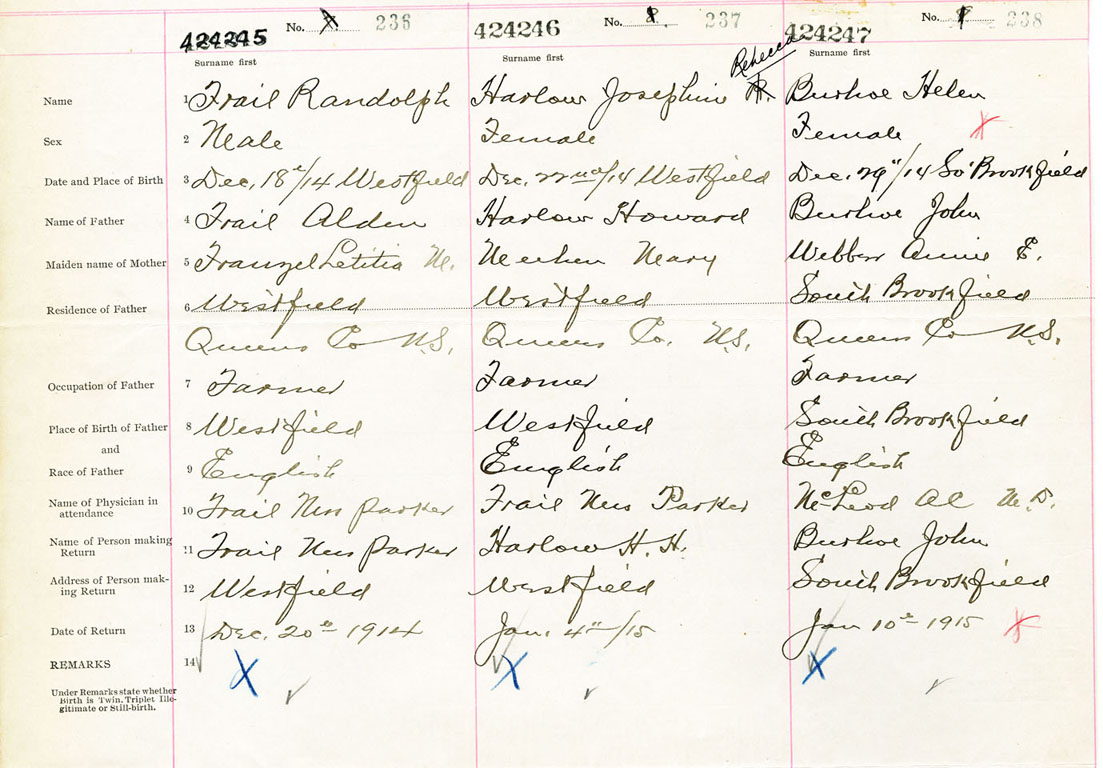 424245 No. 7. 236 424246 No. 8. 237 424247 No. 9 238
Surname first Surname first Surname first
Rebecca
Name 1 Frail Randolph Harlow Josephine R. Burhoe Helen
Sex 2 Male Female Female
Date and Place of Birth 3 Dec. 18th/14 Westfield Dec. 22nd/14 Westfield Dec. 29"/14 So Brookfield
Name of Father 4 Frail Alden Harlow Howard Burhoe John
Maiden name of Mother 5 Letitia M. Mary Webber Annie E.
Residence of Father 6 Westfield Westfield South Brookfield
Queens Co N.S. Queens Co. N.S. Queens Co N.S.
Occupation of Father 7 Farmer Farmer Farmer
Place of Birth of Father 8 Westfield Westfield South Brookfield
and
Race of Father 9 English English English
Name of Physician in attendance 10 Frail Mrs Parker Frail Mrs Parker McLeod M.D.
Name of Person making Return 11 Frail Mrs Parker Harlow H. H. Burhoe John
Address of Person mak-ing Return 12 Westfield Westfield South Brookfield
Date of Return 13 Dec. 20th 1914 Jan. 4th/15 Jan 10th 1915
REMARKS 14
Under Remarks state whether
Birth is Twin, Triplet Ille-
gitimate or Still-birth.